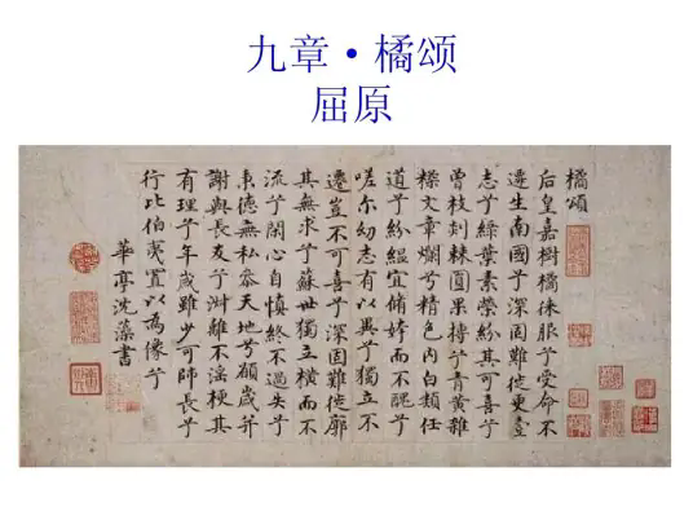 九章·橘颂
屈原
橘頌
后皇嘉樹橘徠服兮受命不
遷生南國兮深固難徙更壹
志兮綠葉素榮紛其可喜兮
曾枝剡棘圓果摶兮青黃雜
糅文章爛兮精色內白類任
道兮紛緼宜脩姱而不醜兮
嗟尔幼志有以異兮獨立不
遷豈不可喜兮深固難徙廓
其無求兮蘇世獨立橫而不
流兮閑心自慎終不過失兮
秉德無私叅天地兮願歲并
謝與長友兮淑離不淫梗其
有理兮年歲雖少可師長兮
行比伯夷置以為像兮
華亭沈藻書